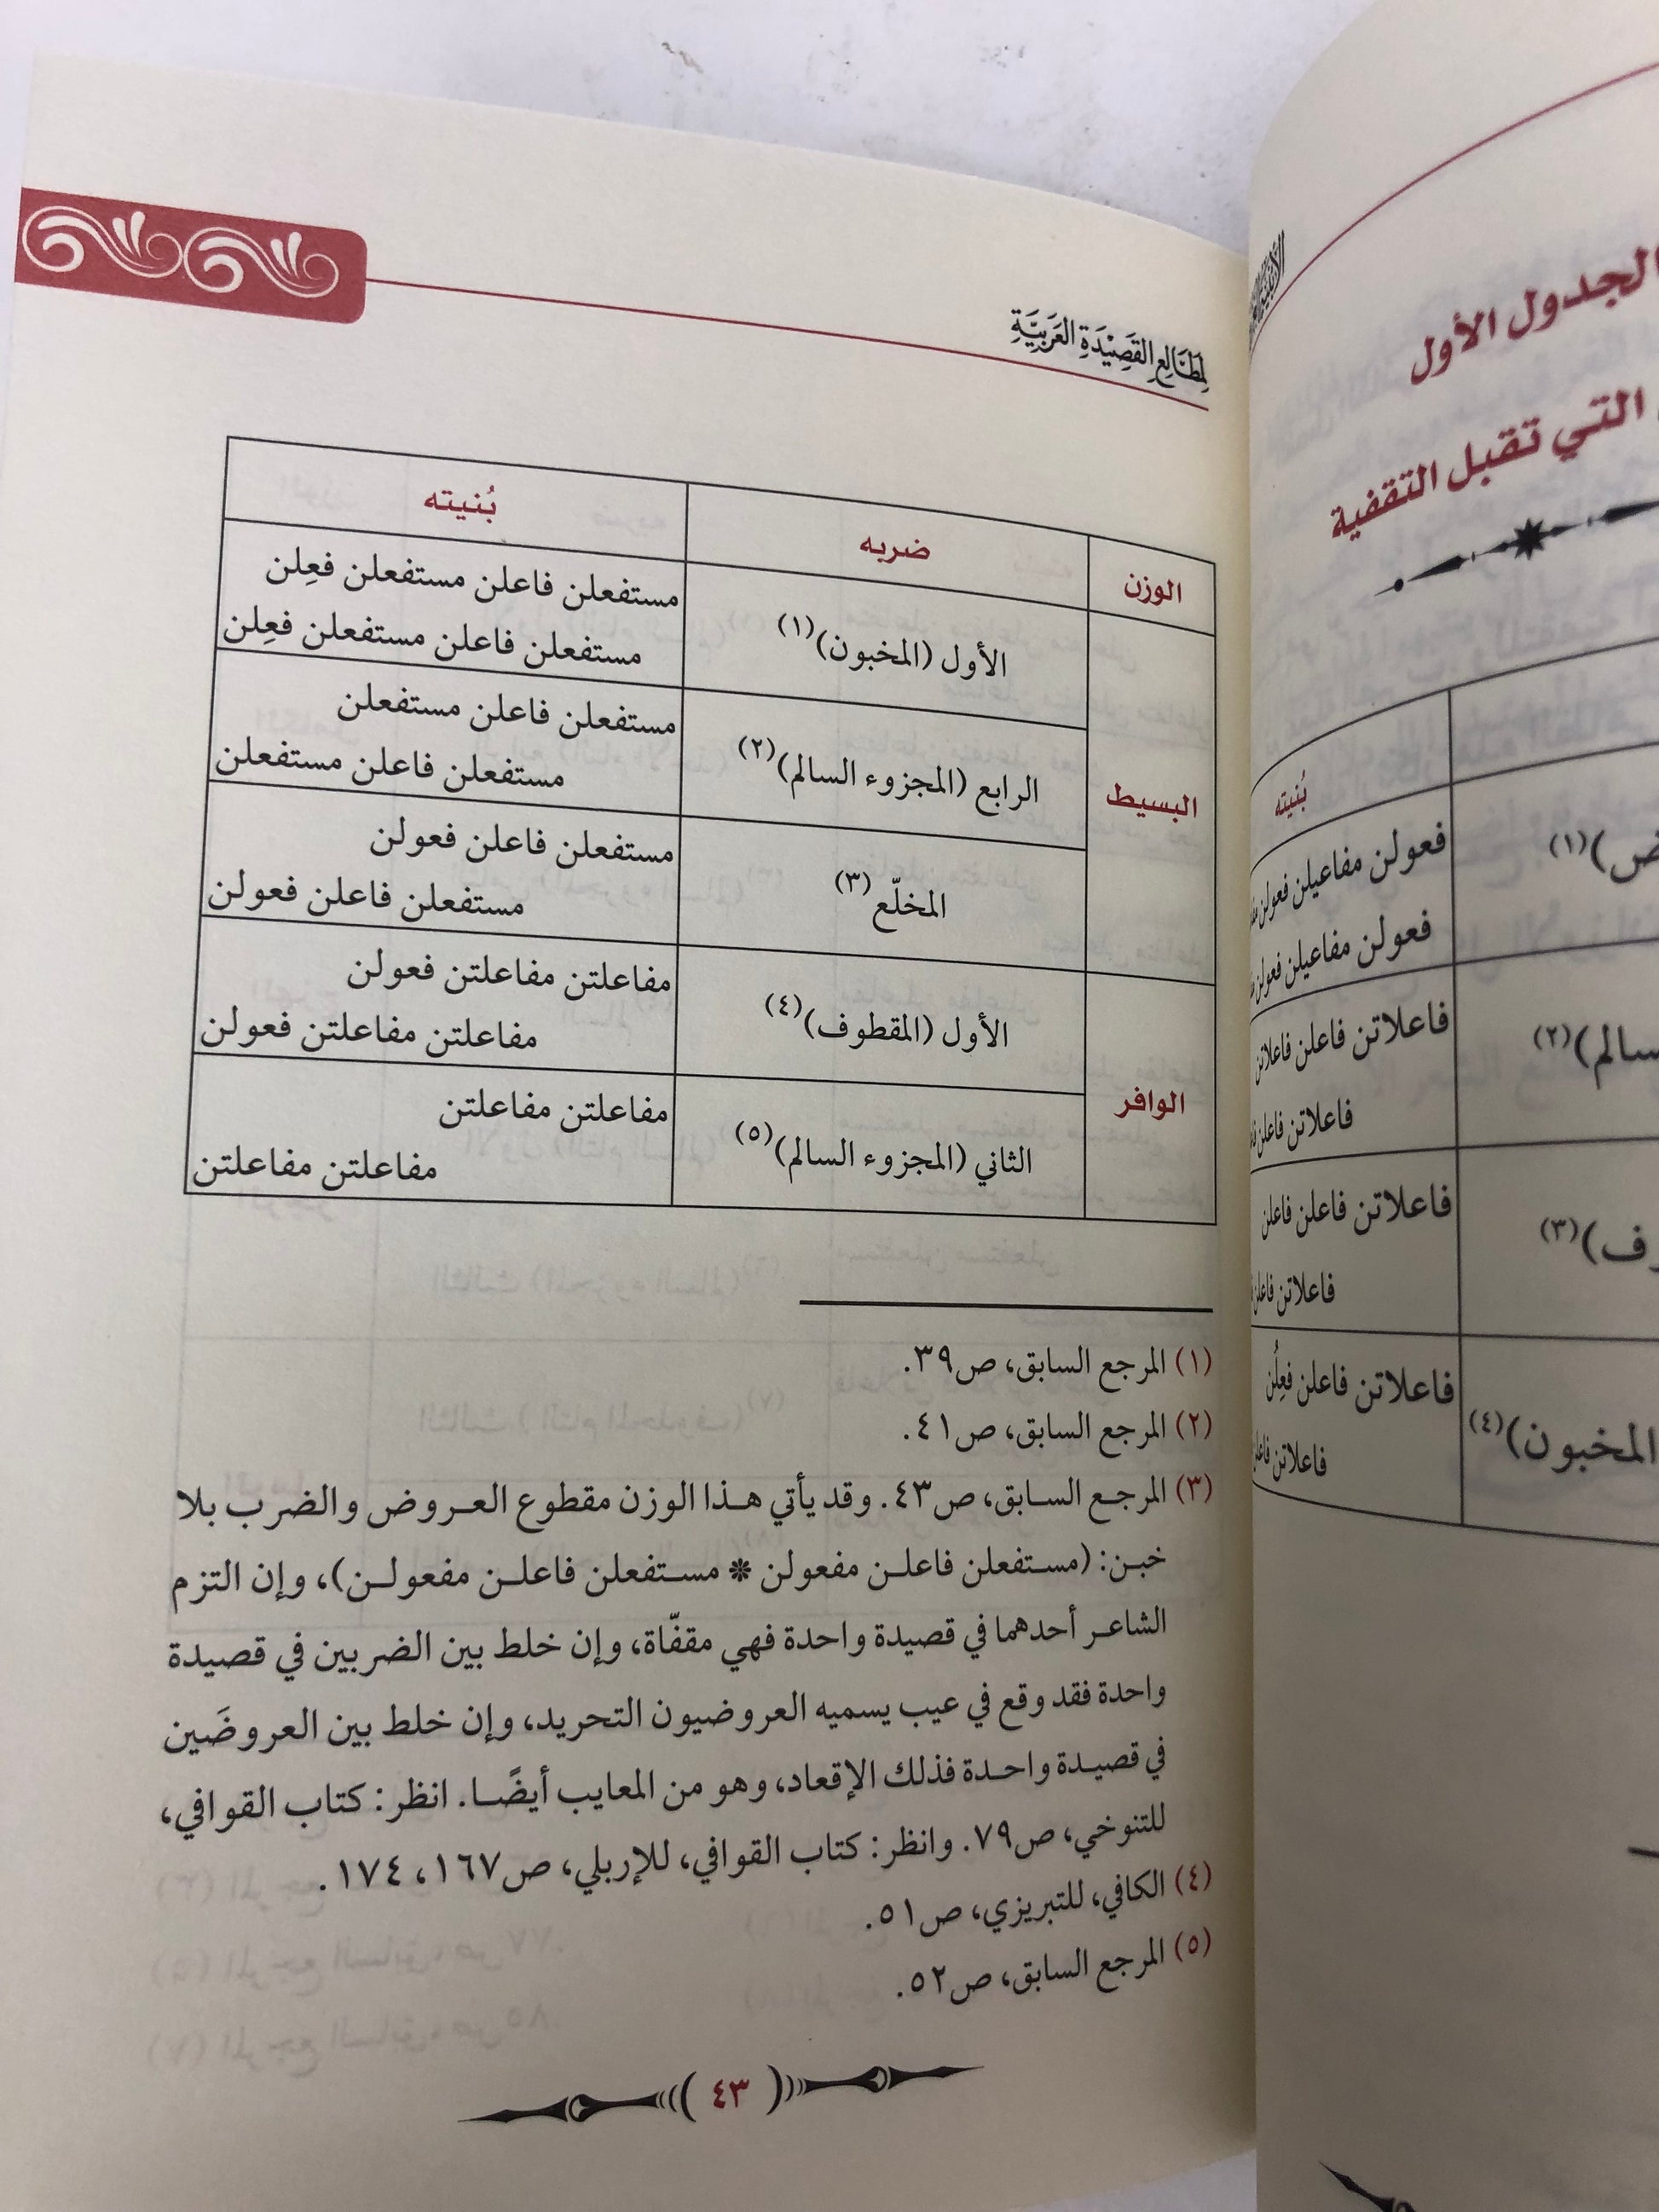 الجدول الأول
التي تقبل التقفية
بُنيته
فعولن مفاعيلن فعولن
فعولن مفاعيلن فعولن
(١)
فاعلاتن فاعلن فاعلاتن
فاعلاتن فاعلن
(٢)
فاعلاتن فاعلن فاعلن
فاعلاتن فاعلن
(٣)
فاعلاتن فاعلن فَعِلُن
فاعلاتن
المخبون)(٤)
لمطالع القَصِيْدَةِ العَرَبِيَّةِ
الوزن ضربه بُنيته
البسيط
الأول (المخبون)(١)
مستفعلن فاعلن مستفعلن فعِلن
مستفعلن فاعلن مستفعلن فعِلن
الرابع (المجزوء السالم)(٢)
مستفعلن فاعلن مستفعلن
مستفعلن فاعلن مستفعلن
المخلّع(٣)
مستفعلن فاعلن فعولن
مستفعلن فاعلن فعولن
الوافر
الأول (المقطوف)(٤)
مفاعلتن مفاعلتن فعولن
مفاعلتن مفاعلتن فعولن
الثاني (المجزوء السالم)(٥)
مفاعلتن مفاعلتن
مفاعلتن مفاعلتن
(١) المرجع السابق، ص٣٩.
(٢) المرجع السابق، ص٤١.
(٣) المرجع السابق، ص٤٣. وقد يأتي هذا الوزن مقطوع العروض والضرب بلا
خبن: (مستفعلن فاعلن مفعولن * مستفعلن فاعلن مفعولن)، وإن التزم
الشاعر أحدهما في قصيدة واحدة فهي مقفّاة، وإن خلط بين الضربين في قصيدة
واحدة فقد وقع في عيب يسميه العروضيون التحريد، وإن خلط بين العروضَين
في قصيدة واحدة فذلك الإقعاد، وهو من المعايب أيضًا. انظر: كتاب القوافي،
للتنوخي، ص٧٩. وانظر: كتاب القوافي، للإربلي، ص١٦٧، ١٧٤.
(٤) الكافي، للتبريزي، ص٥١.
(٥) المرجع السابق، ص٥٢.
٤٣